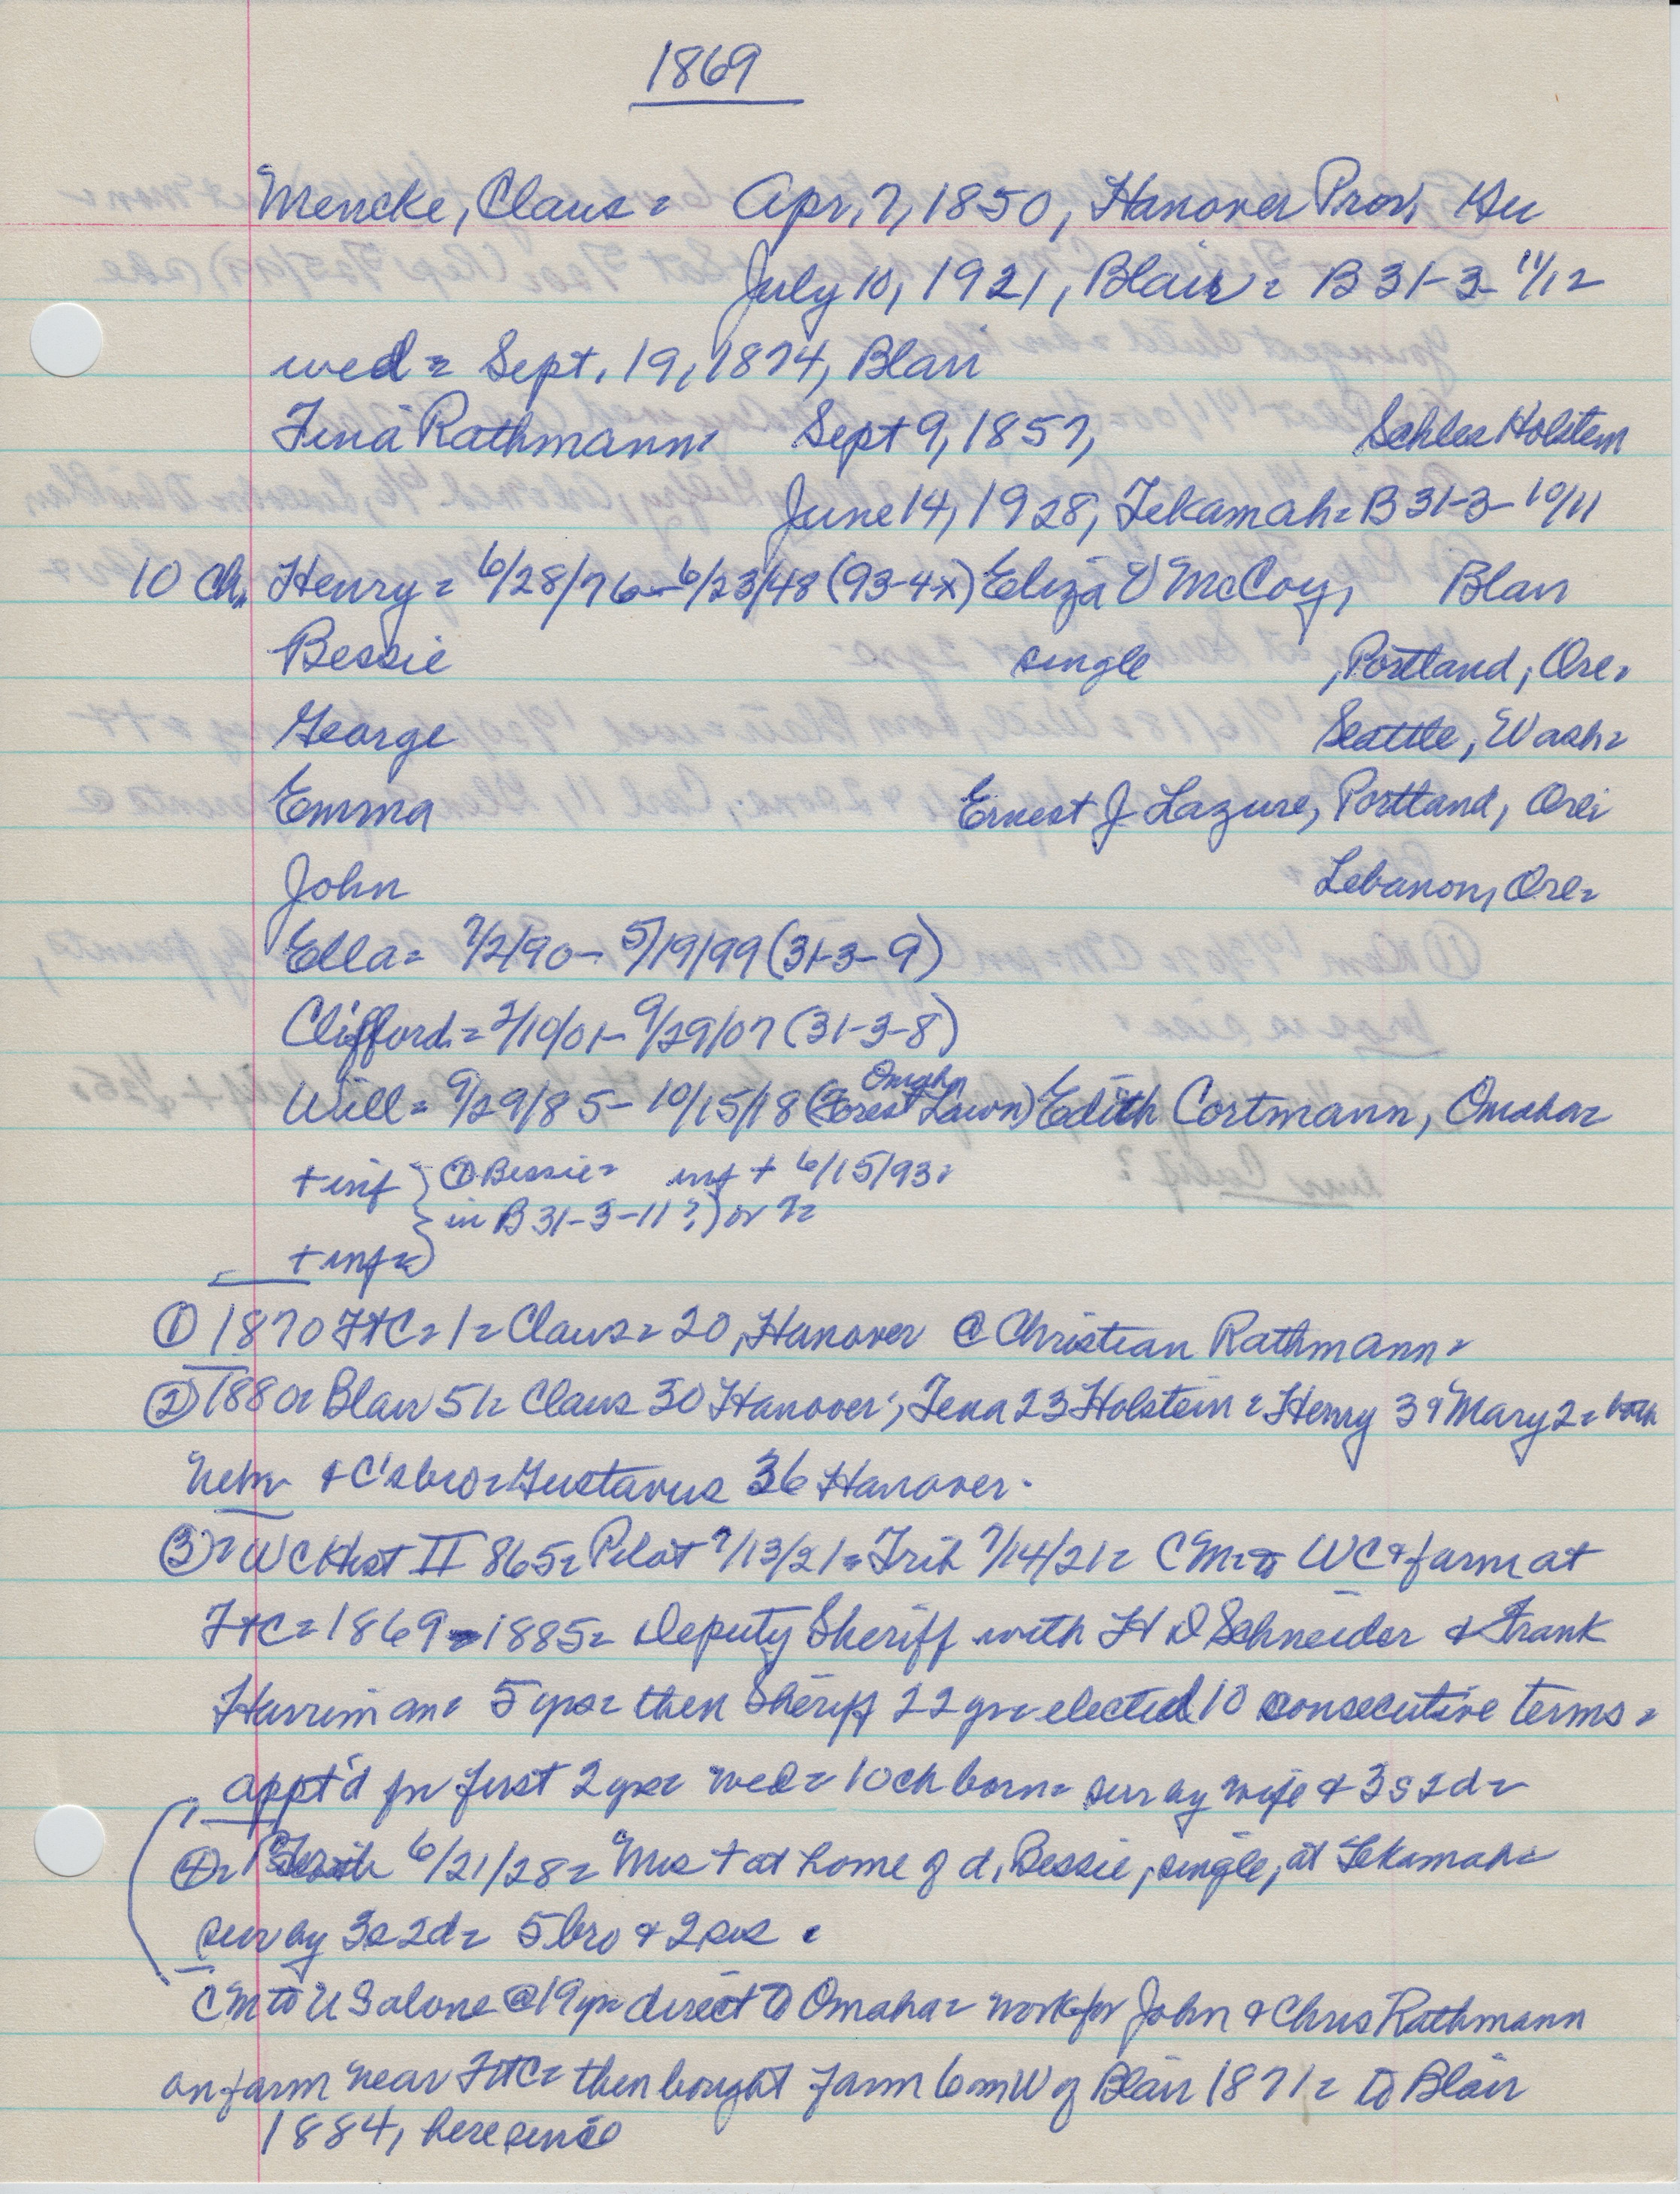 1869
Mencke, Claus = Apr. 7, 1850, Hanover Prov.
July 10, 1921, Blair = B 31-3-11/12
wed = Sept. 19, 1874, Blair
Tena Rathmann = Sept 9, 1857, Schles Holstein
June 14, 1928, Tekamah = B 31-3-10/11
10 Ch. Henry = 6/28/76 - 6/23/48 (93-4x) Eliza V McCoy, Blair
Bessie single , Portland, Ore.
George Seattle, Wash =
Emma Ernest J Lazure, Portland, Ore
John Lebanon, Ore =
Ella = 7/2/90 - 5/19/99 (31-3-9)
Clifford = 2/10/01 - 9/29/07 (31-3-8)
Omaha
Will = 9/29/85 - 10/15/18 (Forest Lawn) Edith Cortmann, Omaha =
+ inf ① Bessie = inf + 6/15/93 =
in B 31-3-11 ?) or ? =
+ inf =
① 1870 FtC = 1 = Claus = 20, Hanover @ Christian Rathmann =
② 1880 = Blair 51 = Claus 30 Hanover; Tena 23 Holstein = Henry 3 & Mary 2 = both
Nebr & C's bro = Gustavus 36 Hanover.
③ = WC Hist II 865 = Pilot 7/13/21 = Trib 7/14/21 = CM = to WC & farm at
FtC = 1869 - 1885 = Deputy Sheriff with H D Schneider & Frank
Harriman = 5 yrs = then Sheriff 22 yr = elected 10 consecutive terms =
appt'd for first 2 yrs = wed = 10 ch born = sur by wife & 3 s 2 d =
④ = 6/21/28 = Mrs + at home of d, Bessie, single, at Tekamah =
sur by 3 s 2 d = 5 bro & 2 sis .
CM to US alone @ 19 yr = direct to Omaha = work for John & Chris Rathmann
on farm near FtC = then bought farm 6 m W of Blair 1871 = to Blair
1884, here since